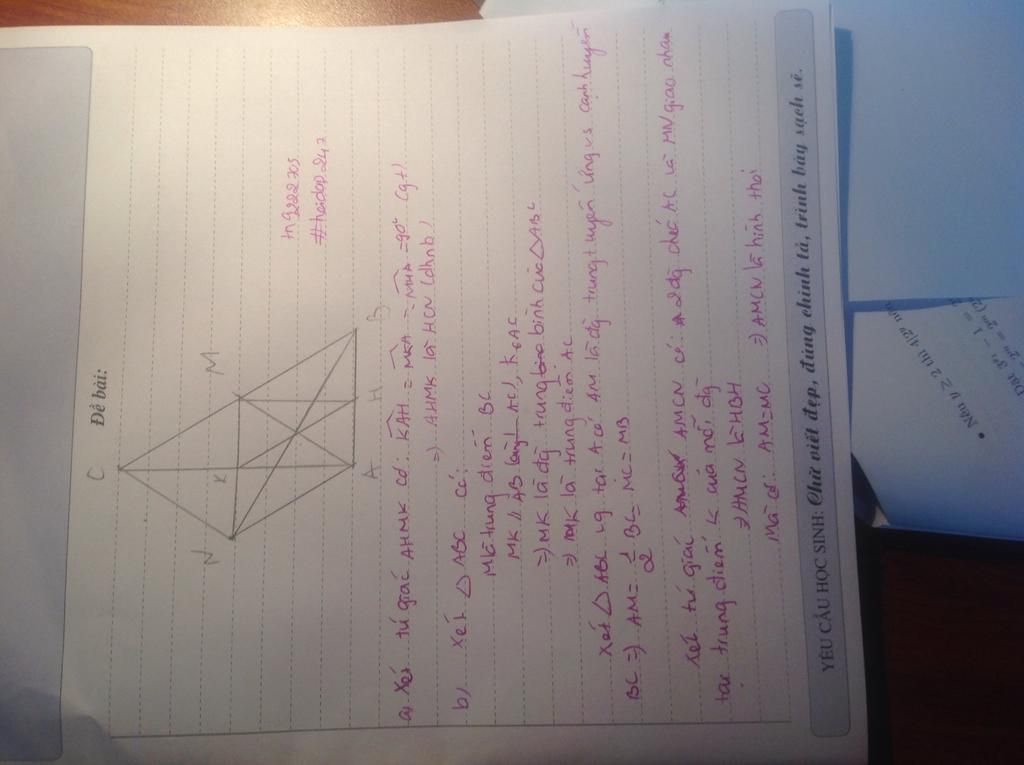 Đề bài:
C
N
K
M
A
H
B
tn922705
#hoidap247
a, Xét tứ giác AHMK có: KAH = MKA = MHA = 90° (gt)
=) AHMK là HCN (dhnb)
b, Xét △ ABC có:
M là trung điểm BC
MK // AB AC), K ∈ AC
=) MK là đg trung bình của △ABC
=) K là trung điểm AC
Xét △ ABC vg tại A có AM là đg trung tuyến ứng vs cạnh huyền
BC =) AM = 1/2 BC = MC = MB
Xét tứ giác AMCN có: 2 đg chéo AC và MN giao nhau
tại trung điểm K của mỗi đg
=) AMCN là HBH
Mà có: AM = MC =) AMCN là hình thoi
YÊU CẦU HỌC SINH: Chữ viết đẹp, đúng chính tả, trình bày sạch sẽ.
• Nếu y ≥ 2 thì
Đặt